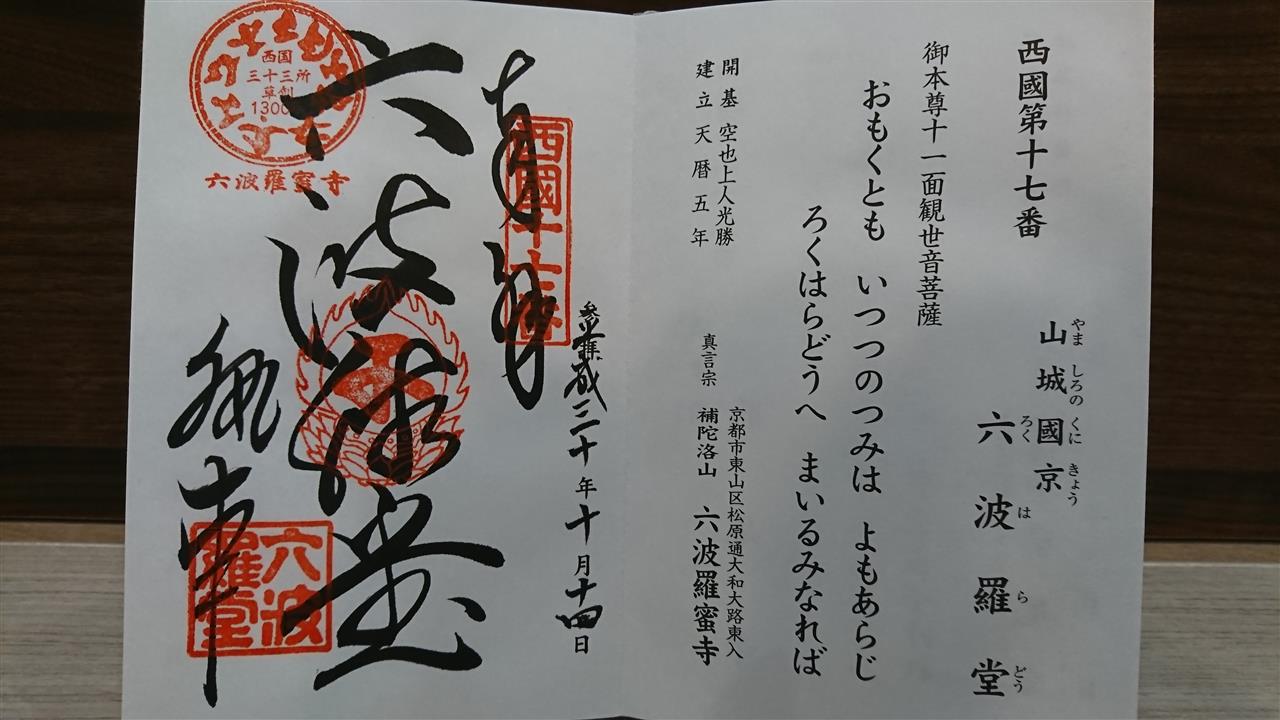 西國第十七番
山城國京
やましろのくにきょう
六波羅堂
ろくはらどう
御本尊十一面観世音菩薩
おもくとも いつつのつみは よもあらじ
ろくはらどうへ まいるみなれば
開基 空也上人光勝
建立 天暦五年
京都市東山区松原通大和大路東入
真言宗 補陀洛山 六波羅蜜寺
奉拝
西國十七番
参拝 平成三十年十月十四日
六波羅堂
六波羅堂
西国
三十三所
草創
1300
六波羅蜜寺